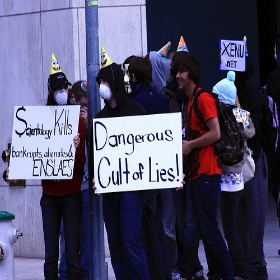 Scientology Kills
bankrupts, alienates &
ENSLAES
Dangerous
Cult of Lies!
XENU
.NET